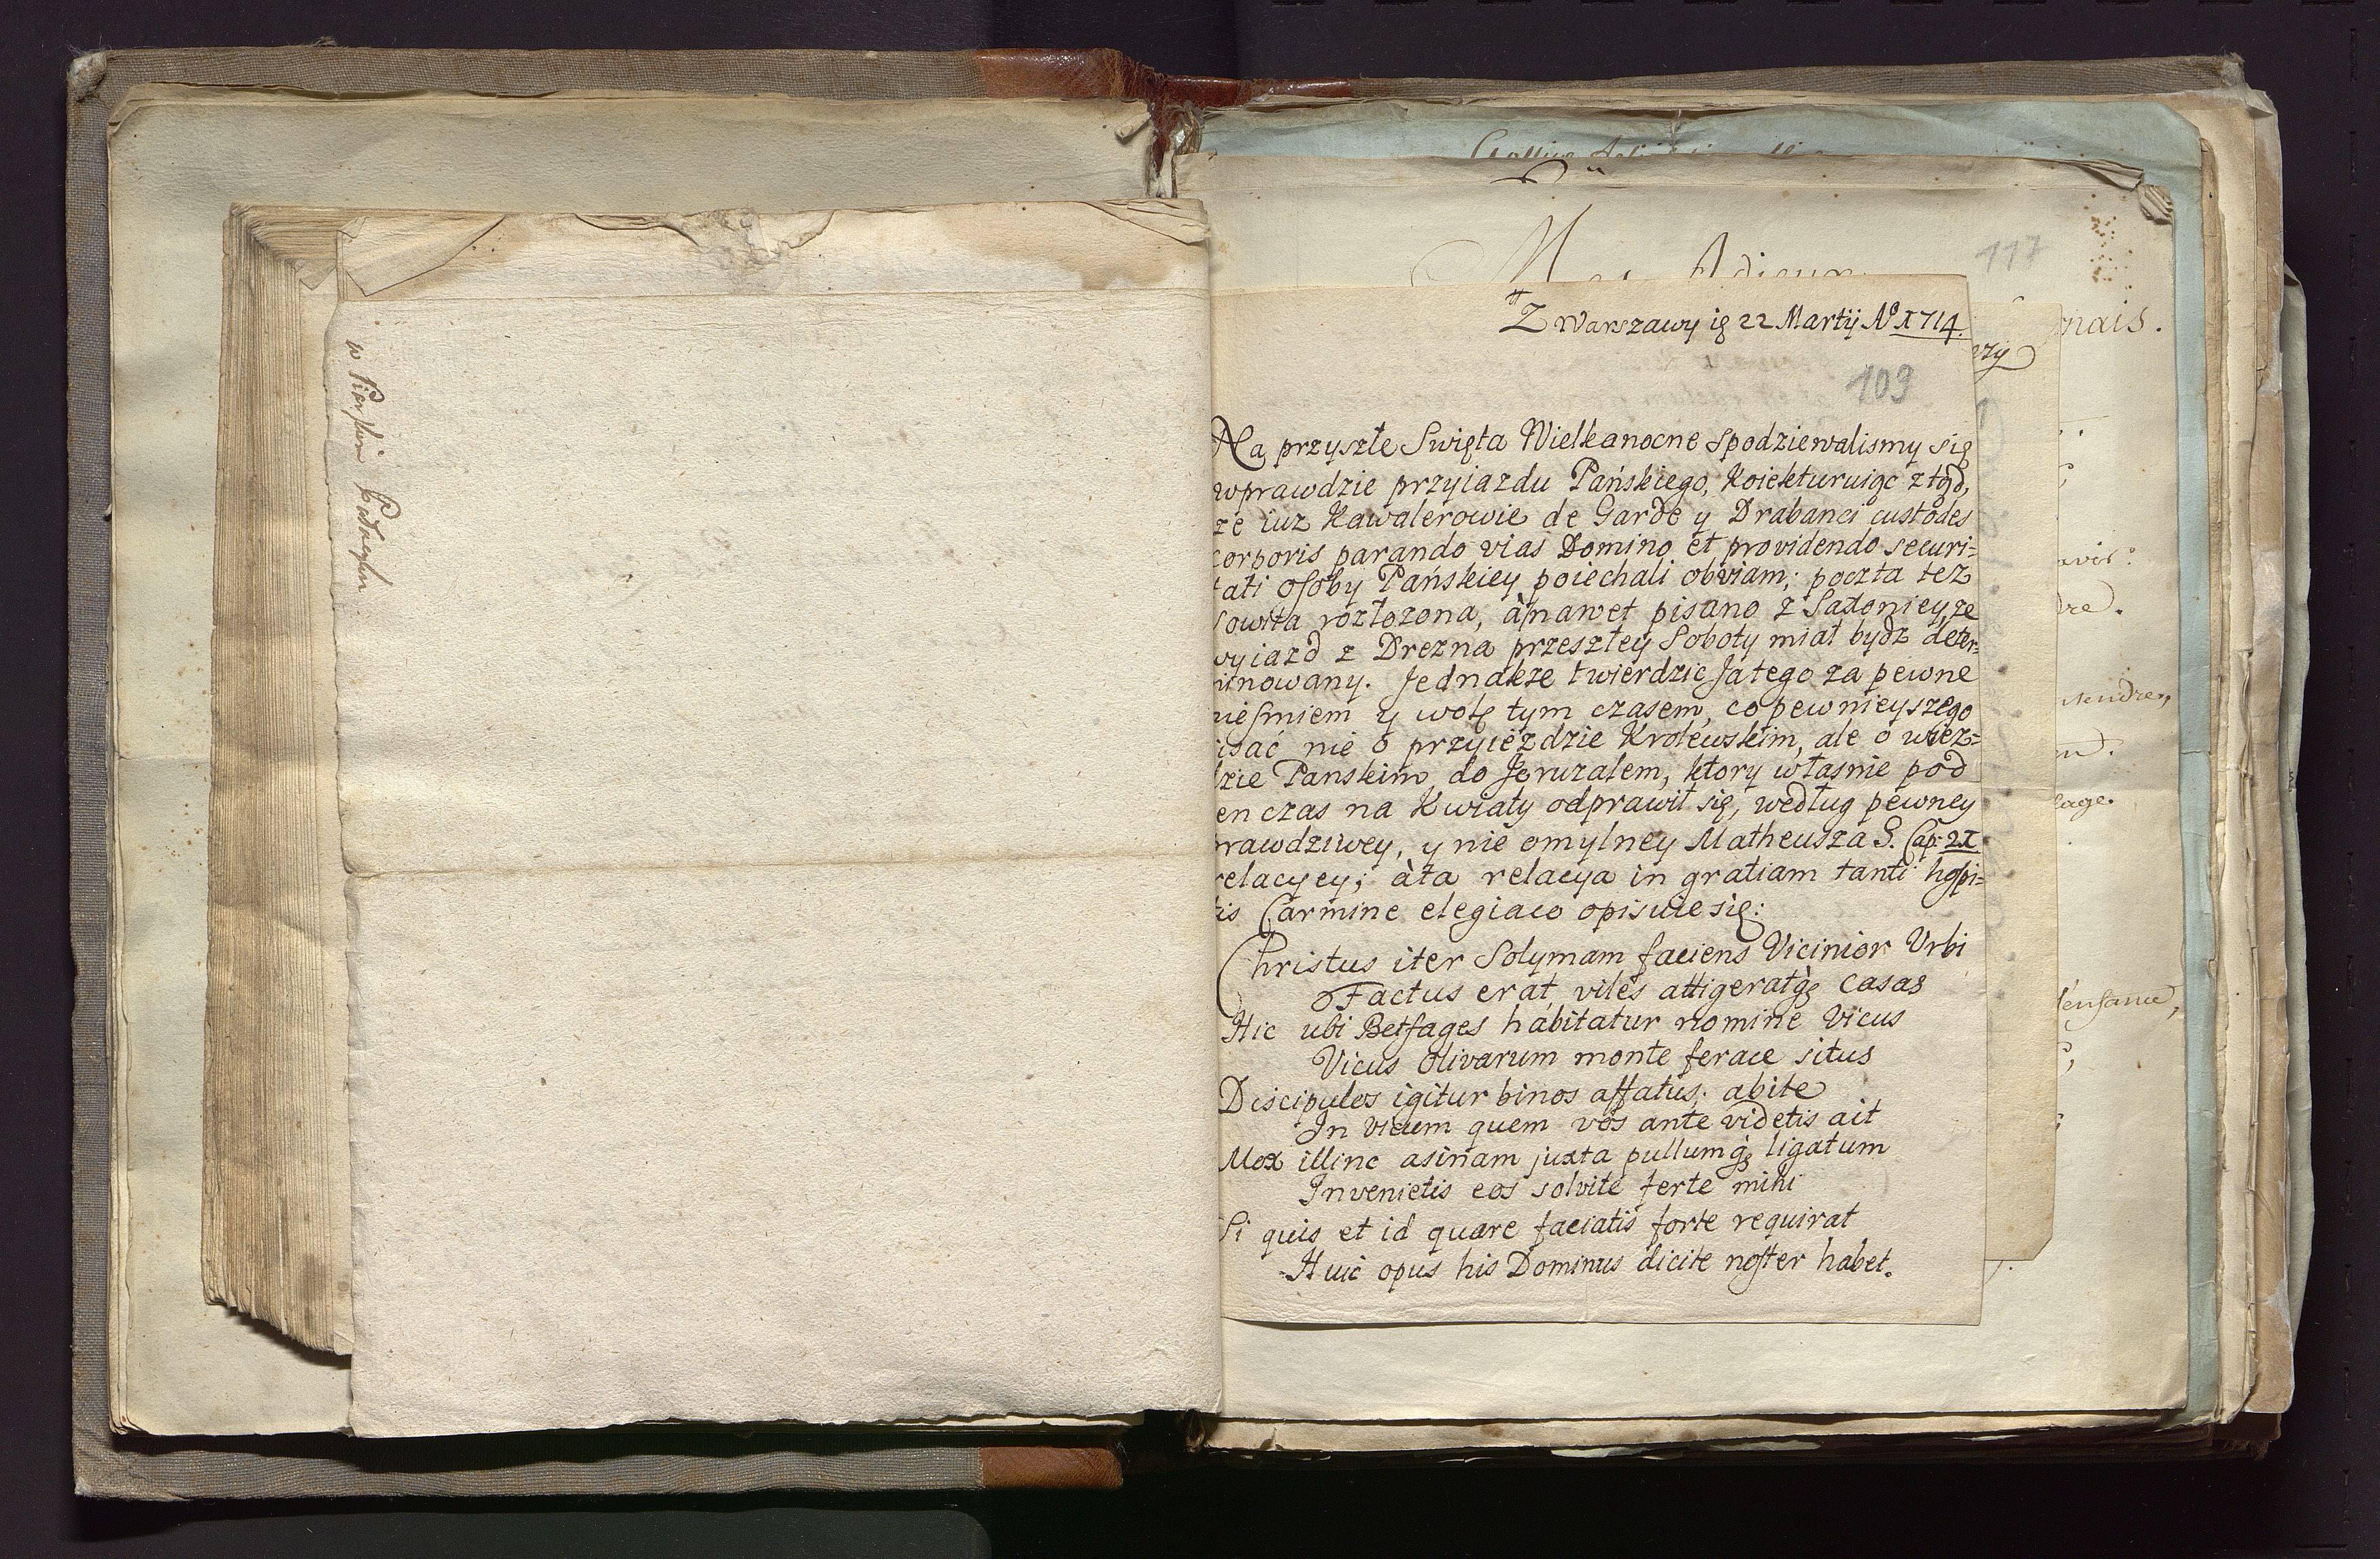 117
Z Warszawy ig 22 Martij Aº 1714.
109
Na przyszłe Swięta Wielkanocne spodziewalismy się
wprawdzie przyiazdu Pańskiego, Koiekturuiąc ztąd,
że iuz Kawalerowie de Garde y Drabanci custodes
corporis parando vias Domino et providendo securi=
tati osoby Pańskiey poiechali obviam; poczta tez
sowita rozłozona, à nawet pisano z Saxoniey ze
wyiazd z Drezna przeszłey Soboty miał bydz deter=
minowany. Jednakze twierdzic Ja tego za pewne
niesmiem y wolę tym czasem, co pewnieyszego
pisać nie o przyiezdzie Krolewskim, ale o wiez=
dzie Panskim do Jeruzalem, ktory własnie pod
ten czas na Kwiaty odprawił się, według pewney
prawdziwey, y nie omylney Matheusza S. Cap: 21
relacyey; àta relacya in gratiam tanti hospi=
tis Carmine elegiaco opisuie się:
Christus iter Solymam faciens Vicinior Urbi
Factus erat viles attigeratq; casas
Hic ubi Betfages habitatur nomine Vicus
Vicus Olivarum monte ferace situs
Discipulos igitur binos affatus; abite
In vicum quem vos ante videtis ait
Mox illinc asinam juxta pullumq; ligatum
Invenietis eos solvite ferte mihi
Si quis et id quare faciatis forte requirat
Huic opus his Dominus dicite noster habet.
nais.